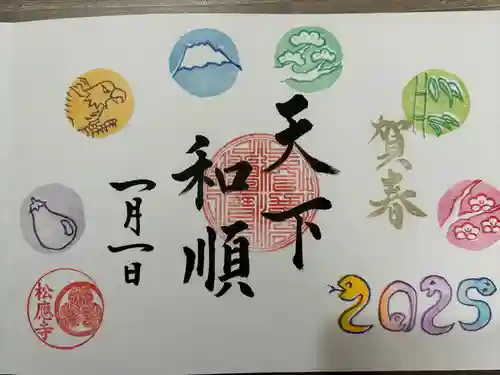 賀春
天下
和順
一月一日
松應寺
2025